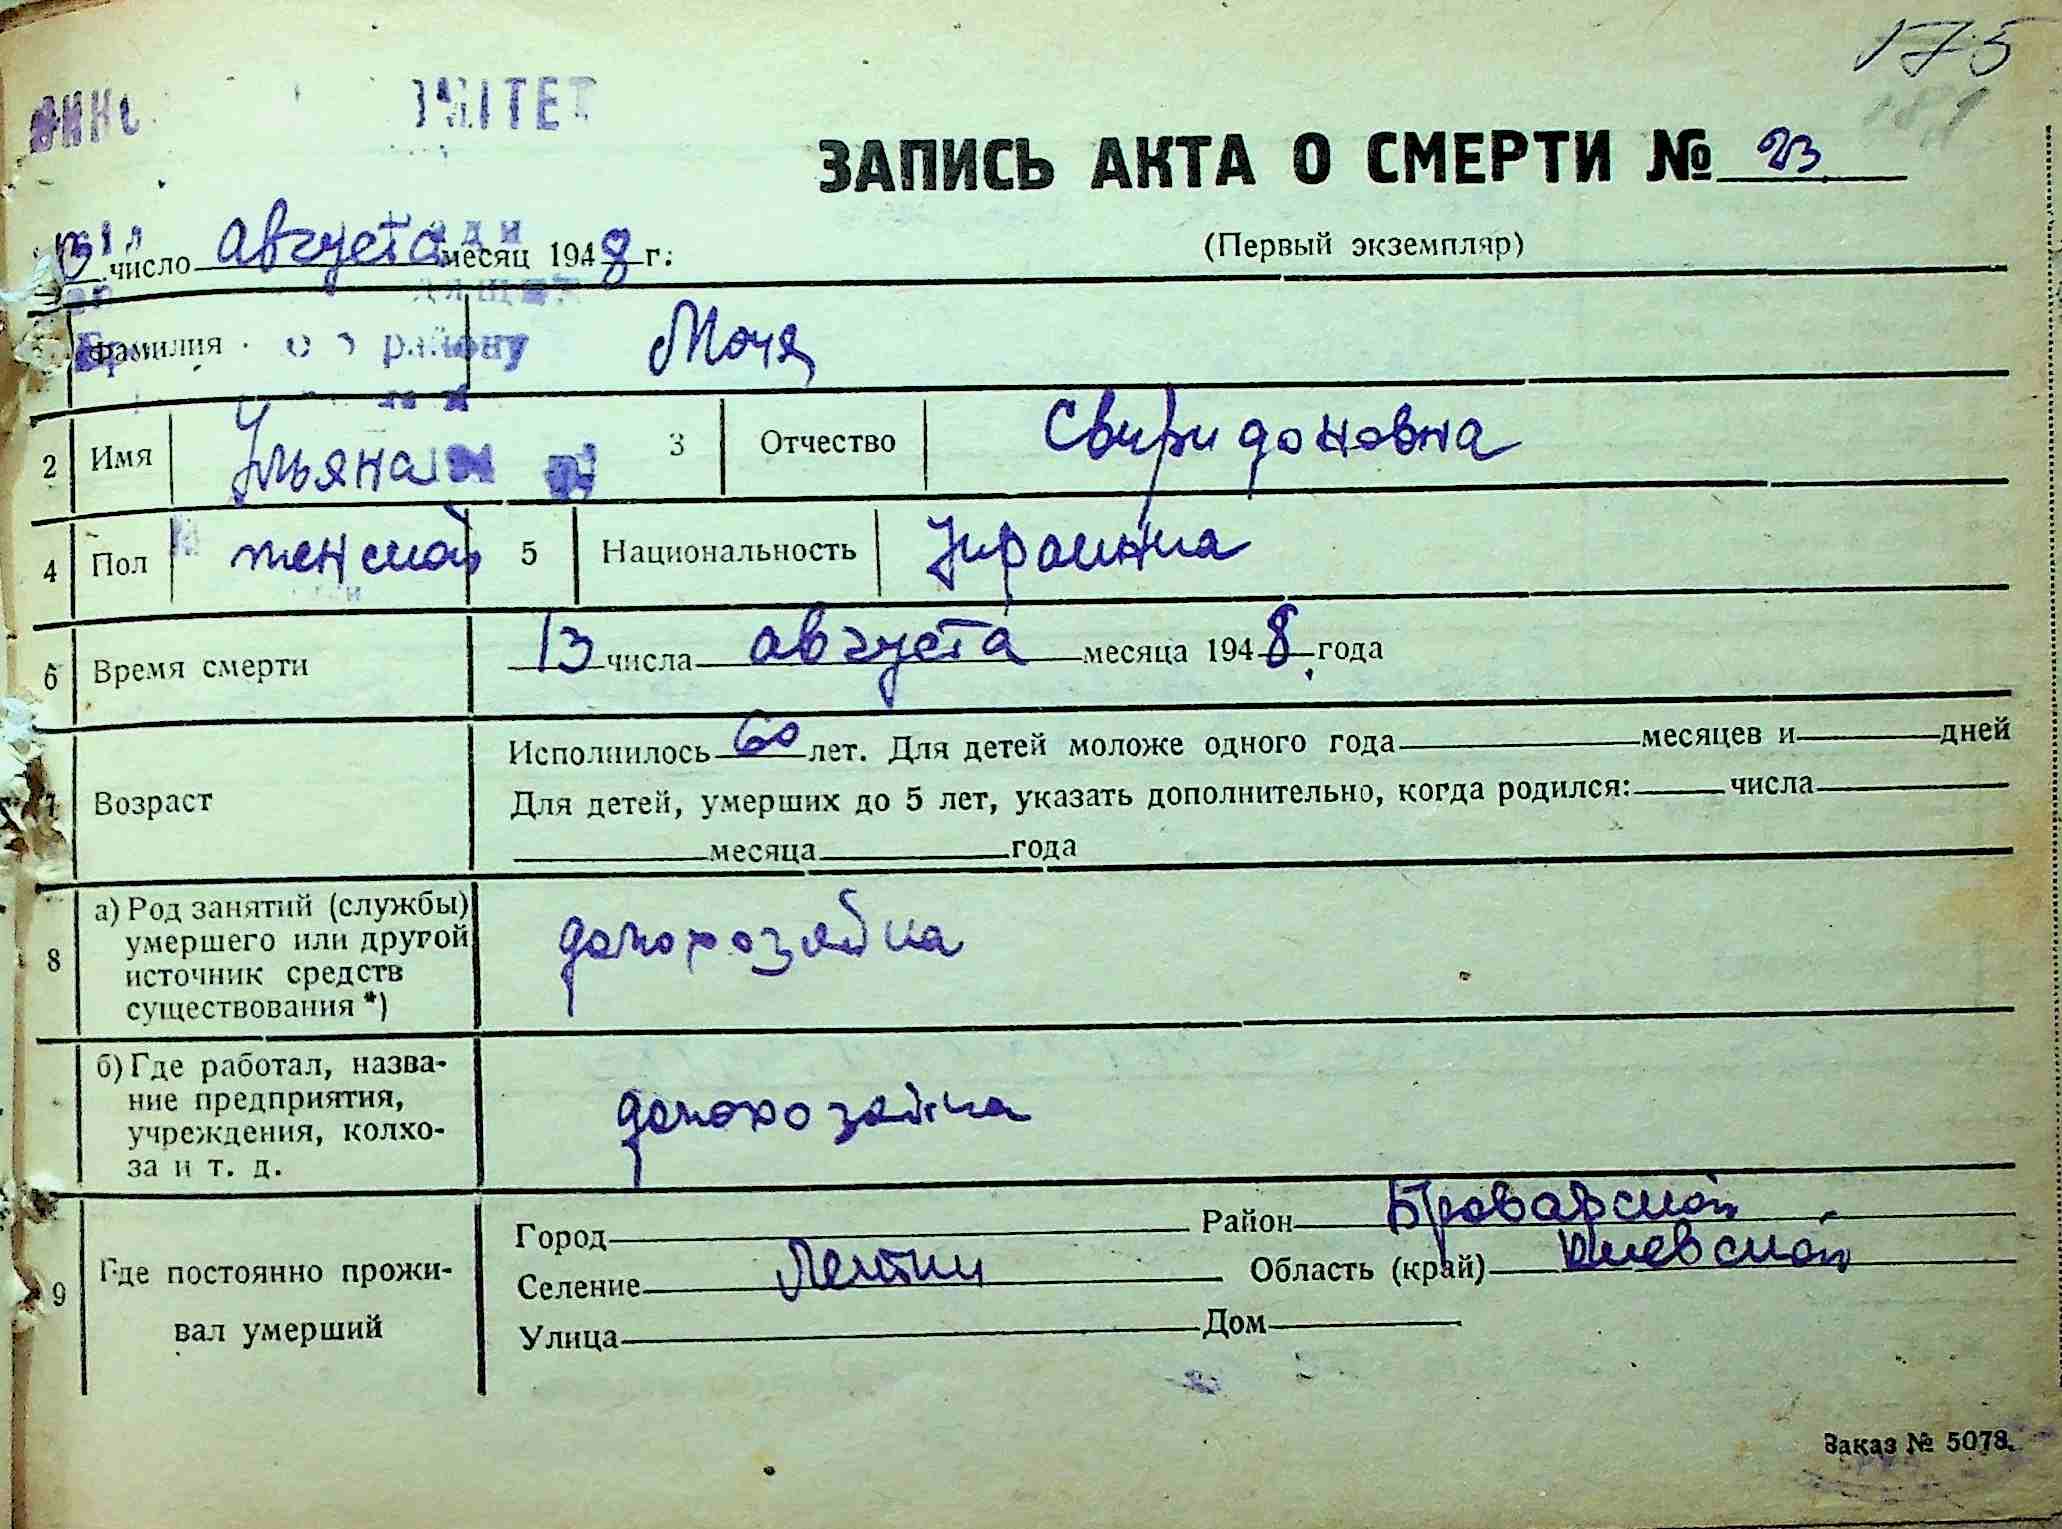 175
181
ЗАПИСЬ АКТА О СМЕРТИ № 23
(Первый экземпляр)
число августа месяц 1948 г.
району
Фамилия Моця
2 Имя Ульяна 3 Отчество Свиридоновна
4 Пол женской 5 Национальность Украинка
6 Время смерти 13 числа августа месяца 1948 года
7 Возраст Исполнилось 60 лет. Для детей моложе одного года месяцев и дней
Для детей, умерших до 5 лет, указать дополнительно, когда родился: числа
месяца года
8 а) Род занятий (службы)
умершего или другой
источник средств
существования *)
домохозяйка
б) Где работал, назва-
ние предприятия,
учреждения, колхо-
за и т. д.
домохозяйка
9 Где постоянно прожи-
вал умерший
Город Район Броварской
Селение Летки Область (край) Киевской
Улица Дом
Заказ № 5078.